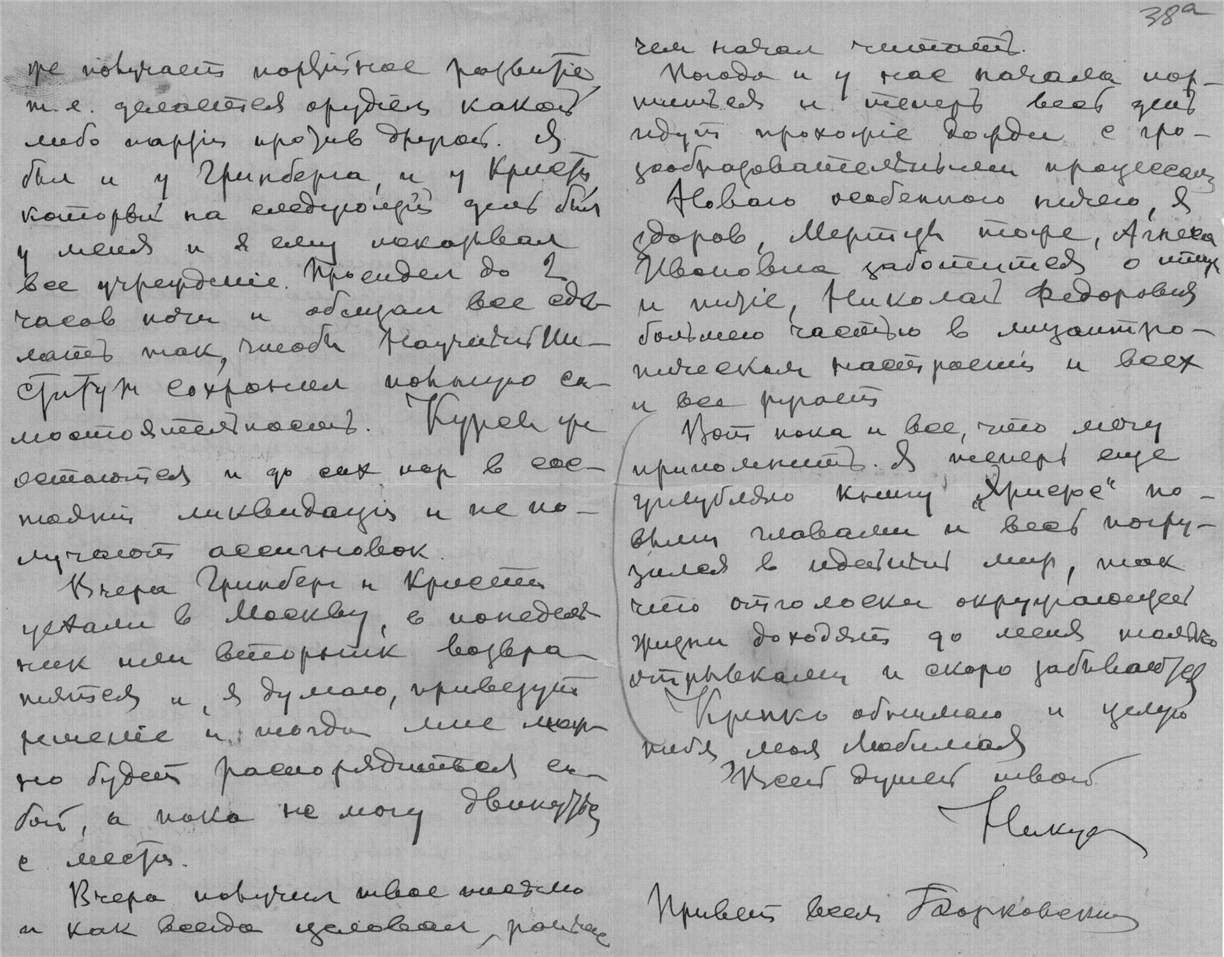 38а
же получает партийное развитие,
т.е. делается орудием какой
либо партіи против другой. Я
был и у Гринберга, и у Кристи,
который на следующій день был
у меня и я ему показывал
все учрежденіе. Просидел до 2
часов ночи и обещал все сде-
лать так, чтобы Научный Ин-
ститут сохранил полную са-
мостоятельность. Курсы же
остаются и до сих пор в сос-
тояніи ликвидаціи и не по-
лучают ассигновок.
Вчера Гринберг и Кристи
уехали в Москву, в понедель-
ник или вторник возвра-
тятся и, я думаю, привезут
решеніе и тогда мне мож-
но будет распорядиться со-
бой, а пока не могу двинуться
с места.
Вчера получил твое письмо
и как всегда целовал, раньше
чем начал читать.
Погода и у нас начала пор-
титься и теперь весь день
идут прохожіе дожди с гро-
зообразовательными процессами
Новаго особенного ничего, я
здоров, тоже, Агнеса
Ивановна заботится о
и пищіе, Николай Федорович
большею частью в мизантро-
пическом настроеніи и всех
и все ругает
Вот пока и все, что могу
припомнить. Я теперь еще
углубляю книгу но-
выми главами и весь погру-
зился в мир, так
что отголоски окружающей
жизни доходят до меня только
отрывками и скоро забываются
Крепко обнимаю и целую
тебя моя Любимая
Всей душей твой
Привет всем